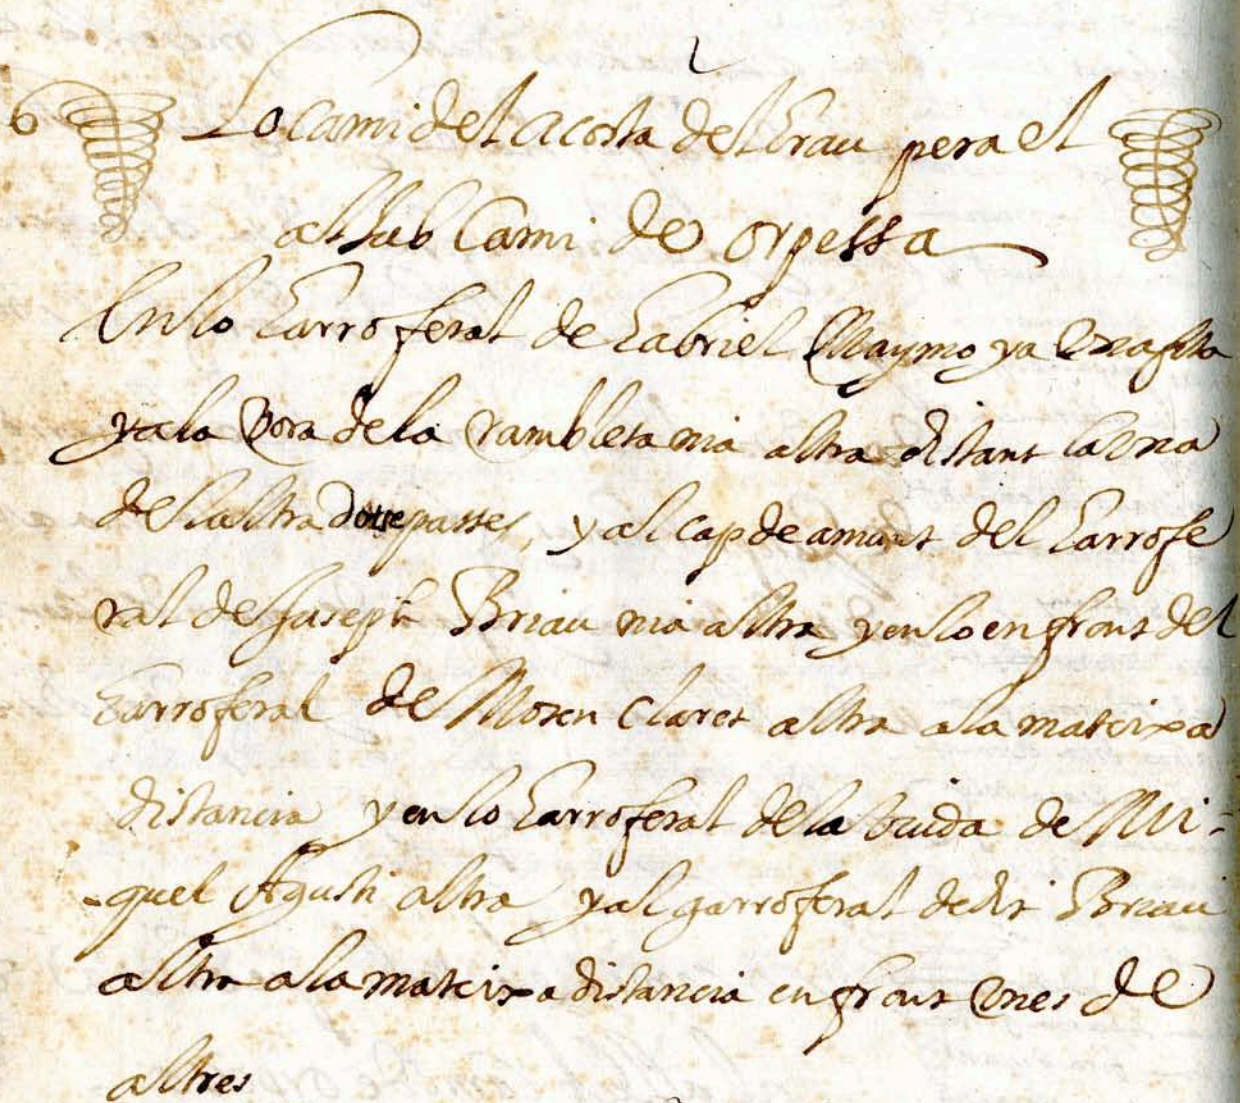 6 Lo Cami de la costa del Grau pera el
assub Cami de orpessa
En lo Garroferal de Gabriel Maymo ya una fita
y a la Vora de la rambleta nia altra distant la una
de la altra dotse passes, y al cap de amunt del Garrofe
ral de Juseph Briau nia altra y en lo enfront del
Garroferal de Mosen Claret altra a la mateixa
distancia y en lo Garroferal de la viuda de Mi=
-quel Agusti altra y al garroferal de dit Briau
altra a la mateixa distancia enfront unes de
altres